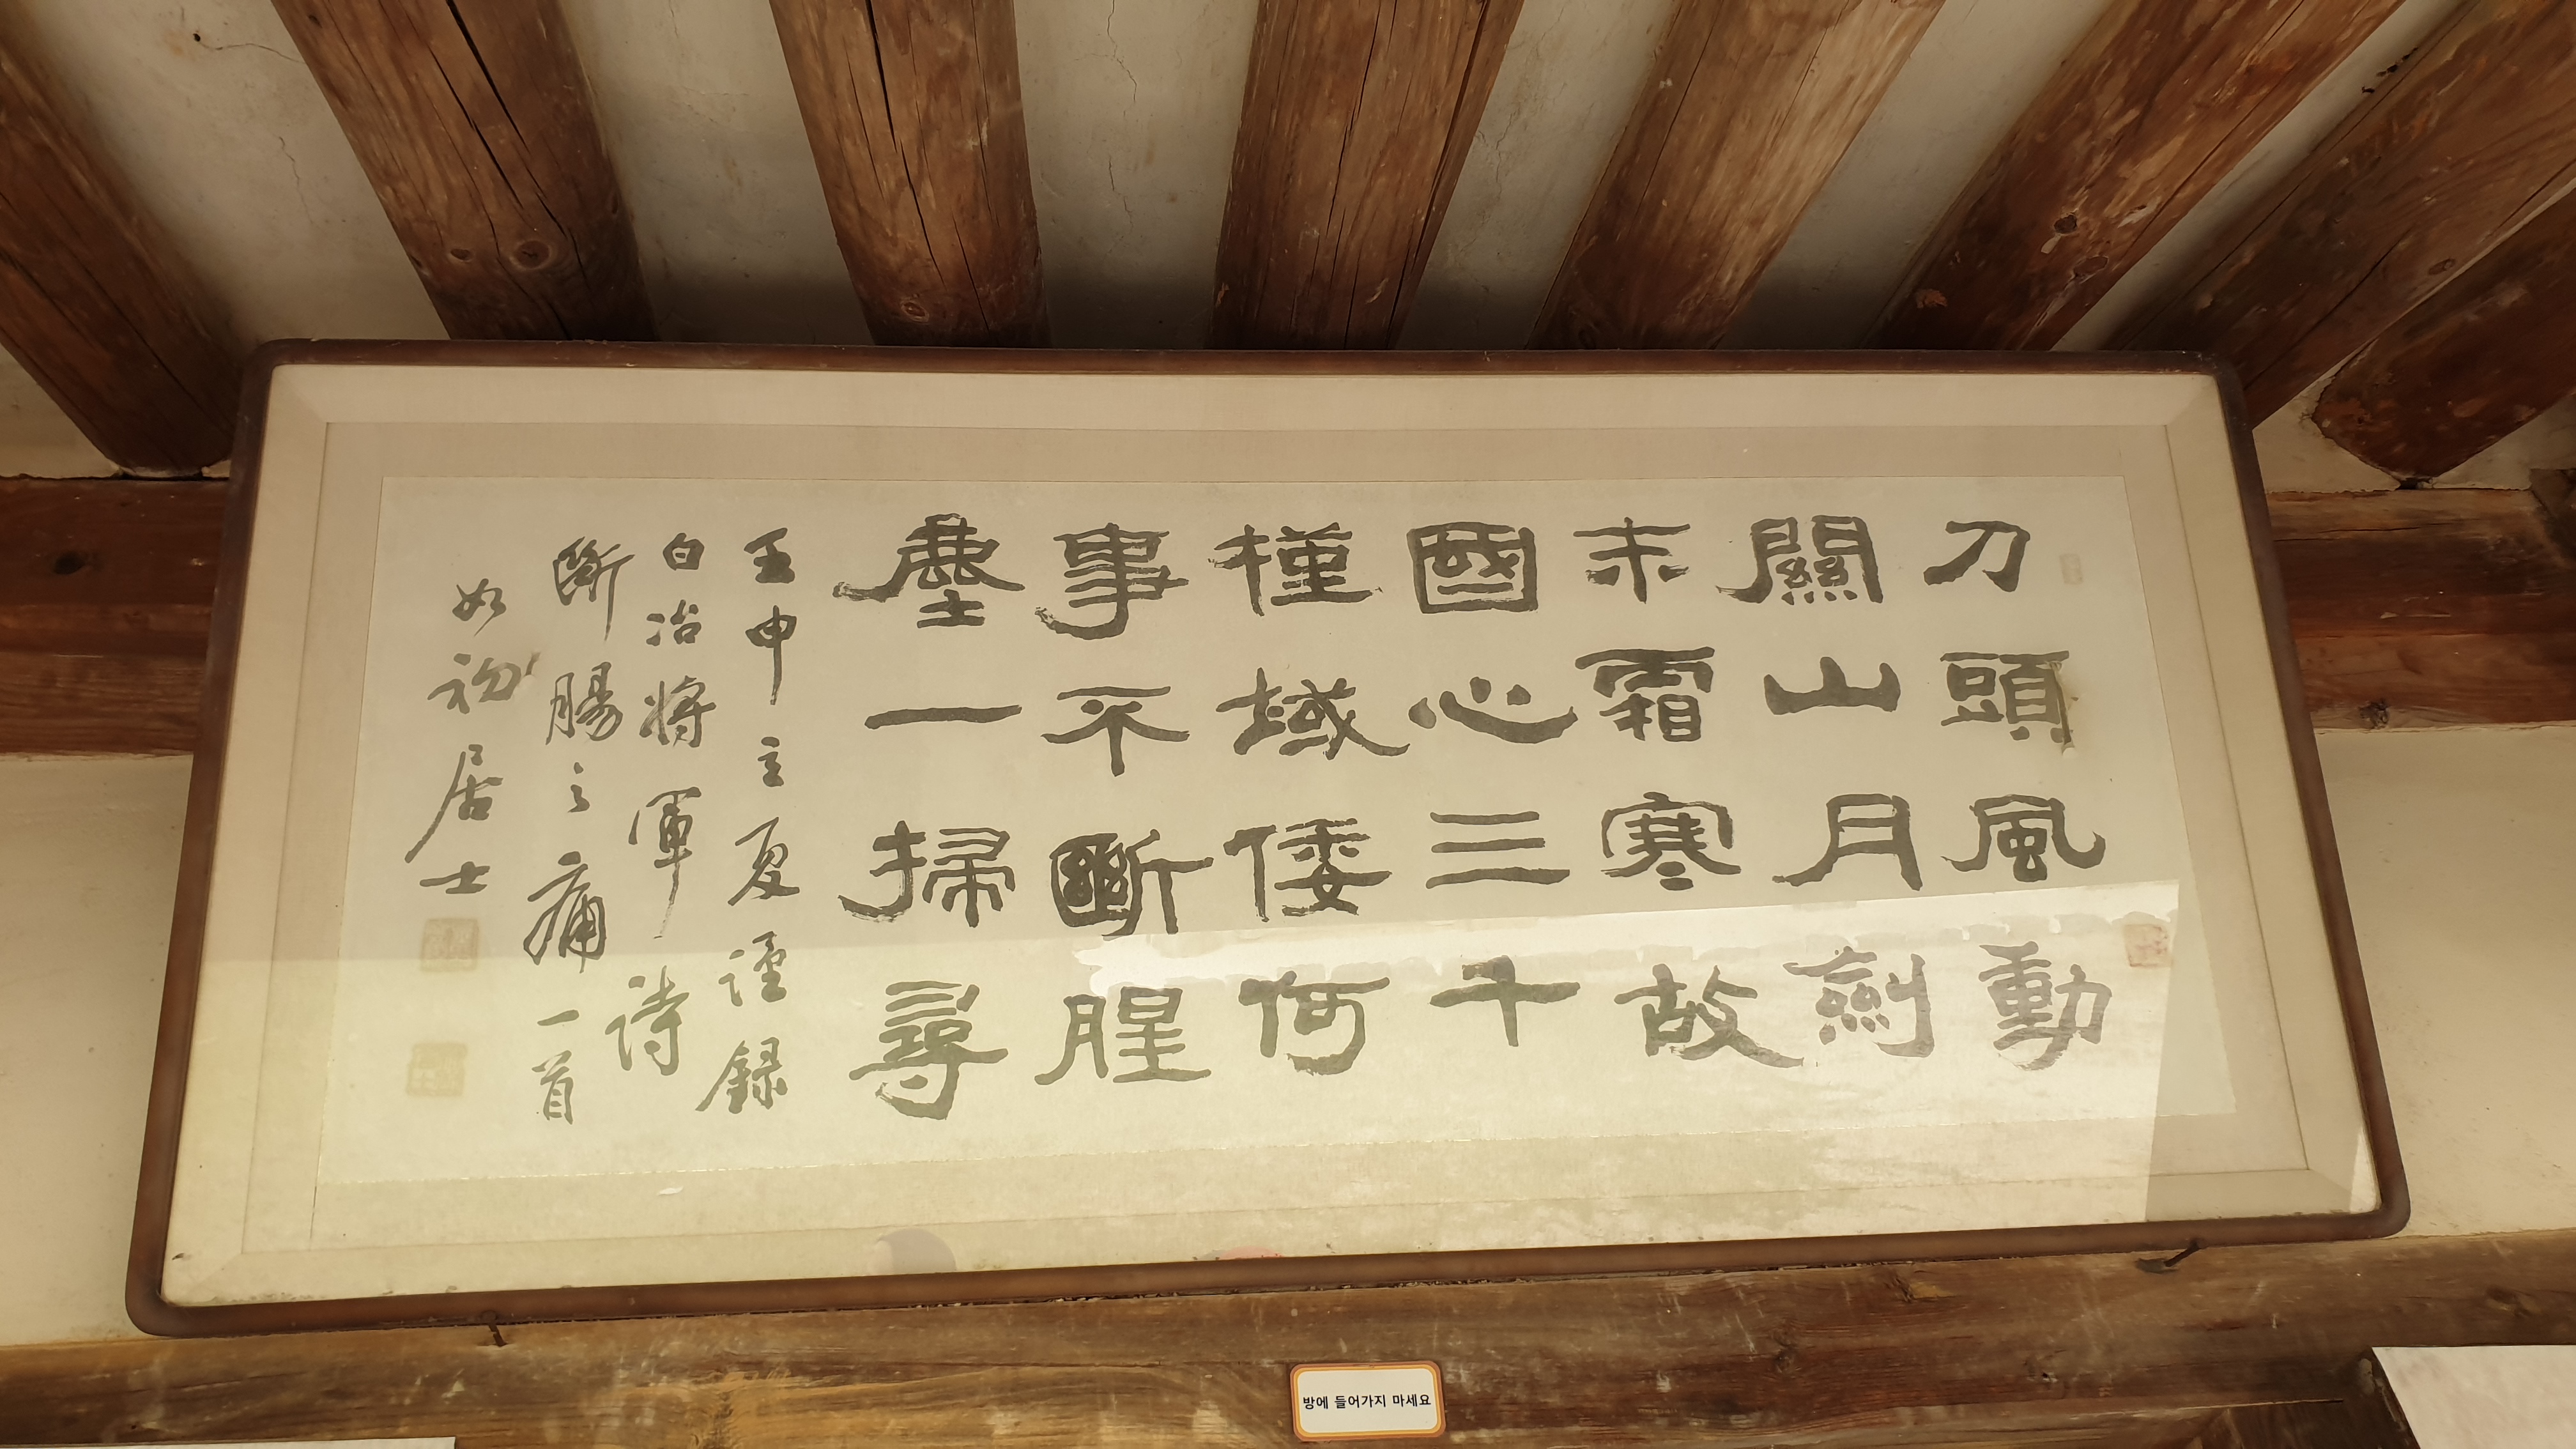 刀頭風動
關山月劍
末霜寒故
國心三千
槿域倭何
事不斷腥
塵一掃尋
壬申之夏謹錄
白冶將軍詩
斷腸之痛一首
如初居士
방에 들어가지 마세요